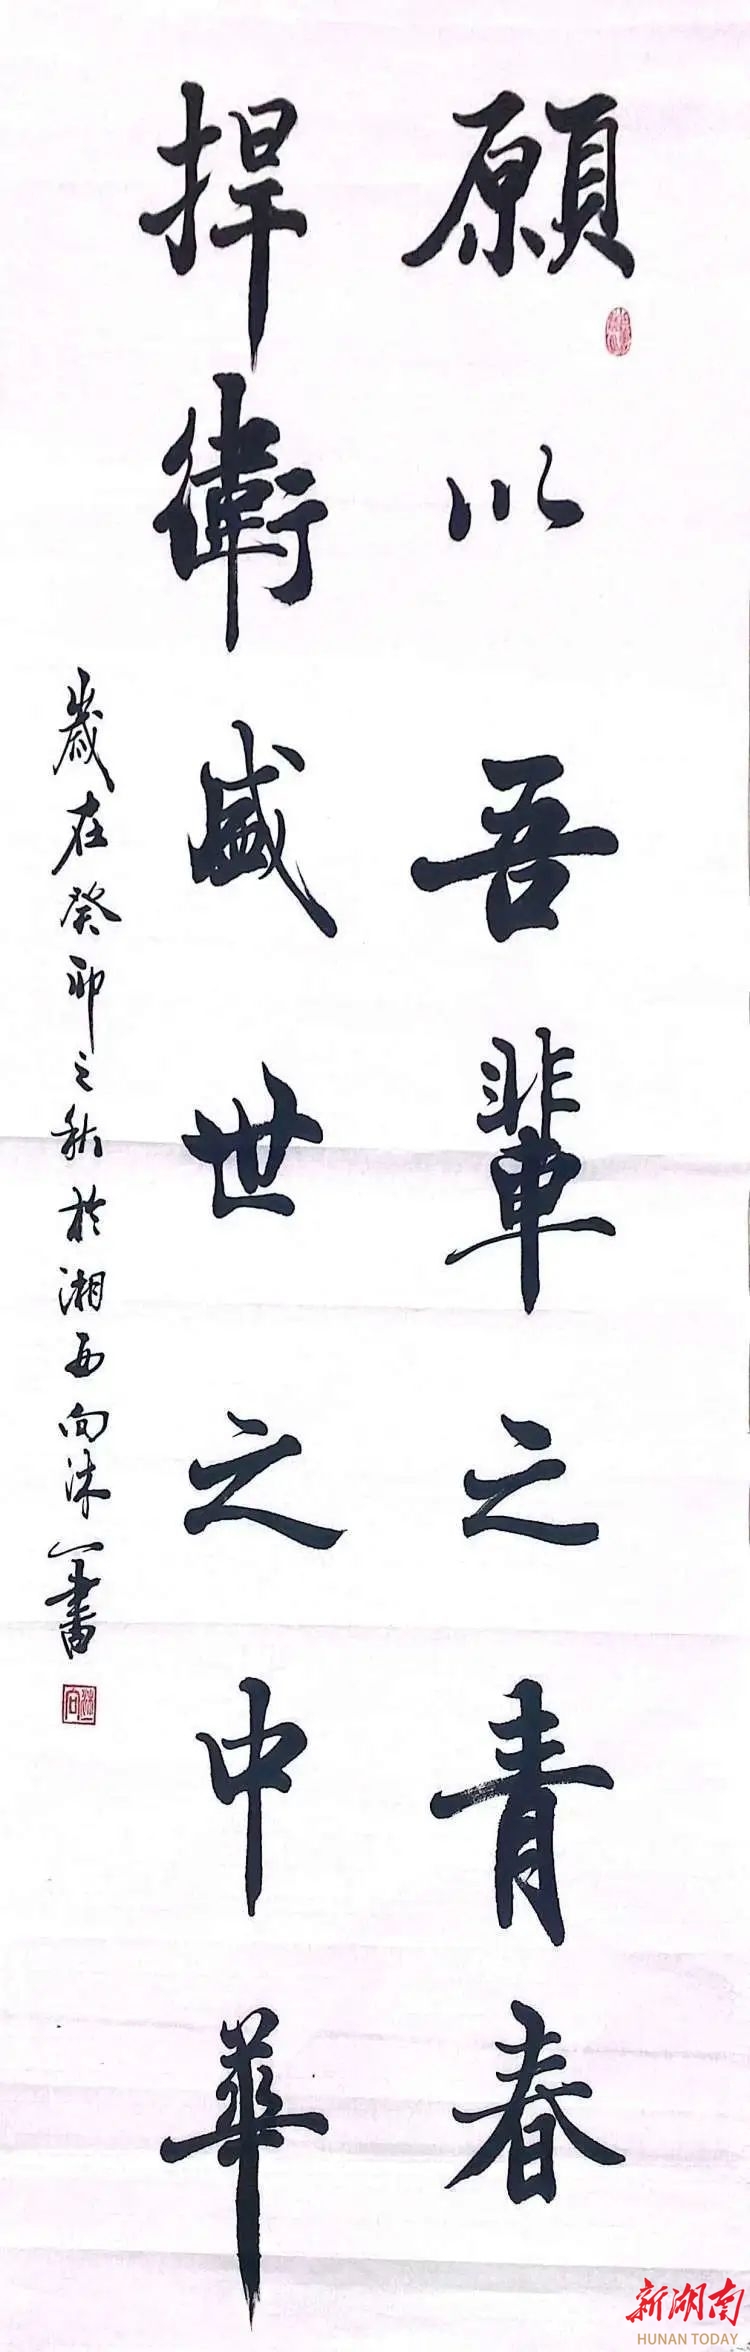 願以吾輩之青春
捍衛盛世之中華
歲在癸卯之秋於湘西向沐一書
新湖南
HUNAN TODAY